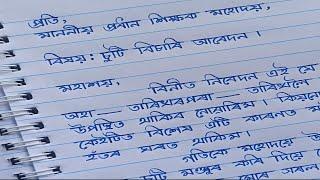 প্ৰতি,
মাননীয় প্ৰধান শিক্ষক মহোদয়,
বিষয় : ছুটী বিচাৰি আবেদন ।
মহাশয়,
বিনীত নিবেদন এই যে
অহা — তাৰিখৰপৰা — তাৰিখলৈ
উপস্থিত থাকিব নোৱাৰিম। কিয়নো
কেইটাত বিশেষ এটি কাৰণত ম
ঘৰত থাকিম।
গতিকে মহোদয়ে
মঞ্জুৰ কৰি দিয়ে